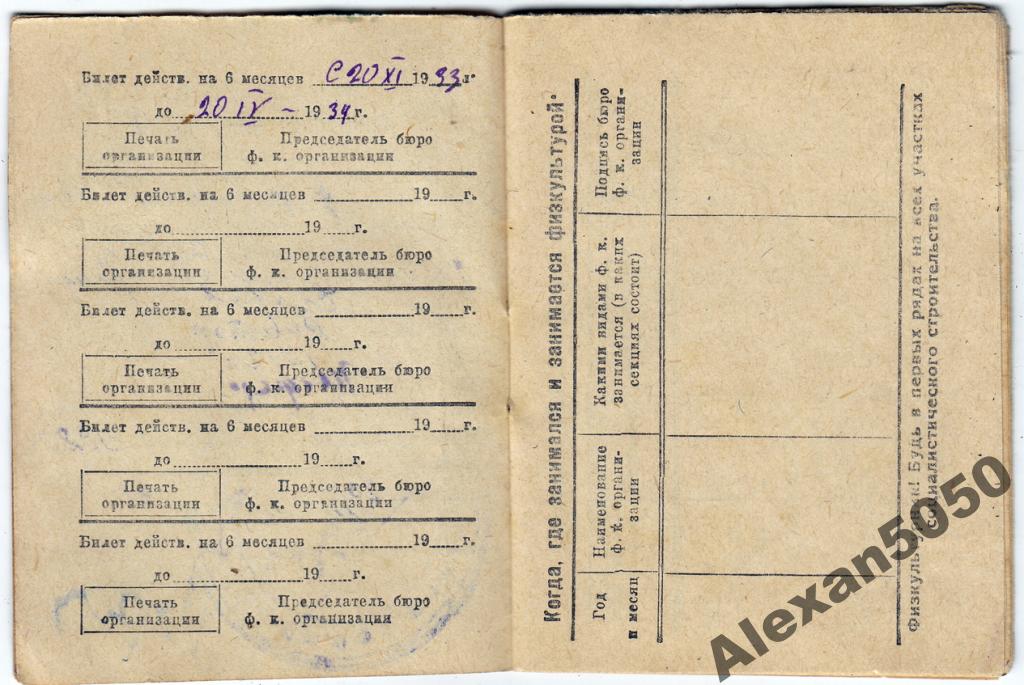 Билет действ. на 6 месяцев с 20 XI 1933 г.
до 20 IV – 1934 г.
Печать организации
Председатель бюро ф. к. организации
Билет действ. на 6 месяцев 19 г.
до 19 г.
Печать организации
Председатель бюро ф. к. организации
Билет действ. на 6 месяцев 19 г.
до 19 г.
Печать организации
Председатель бюро ф. к. организации
Билет действ. на 6 месяцев 19 г.
до 19 г.
Печать организации
Председатель бюро ф. к. организации
Билет действ. на 6 месяцев 19 г.
до 19 г.
Печать организации
Председатель бюро ф. к. организации
Когда, где занимался и занимается физкультурой.
Год
и месяц
Наименование
ф. к. органи-
зации
Какими видами ф. к.
занимается (в каких
секциях состоит)
Подпись бюро
ф. к. органи-
зации
Физкультурник! Будь в первых рядах на всех участках
социалистического строительства.
Alexan5050